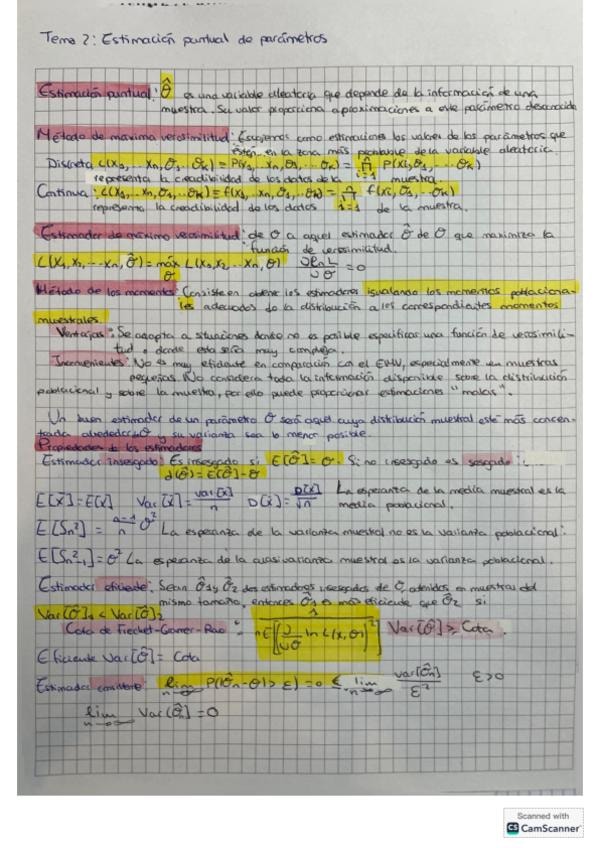 Tema 2: Estimación puntual de parámetros
Estimación puntual: θ̂ es una variable aleatoria que depende de la información de una
muestra. Su valor proporciona aproximaciones a este parámetro desconocido
Método de máxima verosimilitud: Escogeremos como estimaciones los valores de los parámetros que
estén en la zona más probable de la variable aleatoria.
Discreta L(X₁, ... Xn, θ₁, ... θk) = P(X₁, ... Xn, θ₁, ... θk) = ∏ i=1 n P(Xi, θ₁, ... θk)
representa la credibilidad de los datos de la muestra.
Continua: L(X₁, ... Xn, θ₁, ... θk) = f(X₁, ... Xn, θ₁, ... θk) = ∏ i=1 n f(Xi, θ₁, ... θk)
representa la credibilidad de los datos de la muestra.
Estimador de máxima verosimilitud: de θ a aquel estimador θ̂ de θ que maximiza la
función de verosimilitud.
L(X₁, X₂, ... Xn, θ̂) = máx θ L(X₁, X₂ ... Xn, θ) ∂ln L/∂θ = 0
Método de los momentos: Consiste en obtener los estimadores igualando los momentos poblaciona-
les adecuados de la distribución a los correspondientes momentos
muestrales.
Ventajas: Se adapta a situaciones donde no es posible especificar una función de verosimili-
tud o donde esta sería muy compleja.
Inconvenientes: No es muy eficiente en comparación con el EMV, especialmente en muestras
pequeñas. No considera toda la información disponible sobre la distribución
poblacional y sobre la muestra, por ello puede proporcionar estimaciones "malas".
Un buen estimador de un parámetro θ será aquel cuya distribución muestral esté más concen-
trada alrededor de θ y su varianza sea lo menor posible.
Propiedades de los estimadores
Estimador insesgado: Es insesgado si E[θ̂] = θ. Si no insesgado es sesgado:
d(θ̂) = E[θ̂] - θ
E[x̄] = E[X] Var[x̄] = Var[X]/n D[x̄] = D[X]/√n La esperanza de la media muestral es la
media poblacional.
E[Sn²] = n-1/n σ² La esperanza de la varianza muestral no es la varianza poblacional:
E[Sn-1²] = σ² La esperanza de la cuasivarianza muestral es la varianza poblacional.
Estimador eficiente: Sean θ̂₁ y θ̂₂ dos estimadores insesgados de θ, obtenidos en muestras del
mismo tamaño, entonces θ̂₁ es más eficiente que θ̂₂ si
Var[θ̂]₁ < Var[θ̂]₂
Cota de Frechet-Cramer-Rao = 1/nE[(∂/∂θ ln L(x, θ))²] Var[θ̂] ≥ Cota.
Eficiente Var[θ̂] = Cota
Estimador consistente: lim n→∞ P(|θ̂n - θ| > ε) = 0 ≤ lim n→∞ Var[θ̂n]/ε² ε > 0
lim n→∞ Var[θ̂n] = 0
Scanned with
CS CamScanner